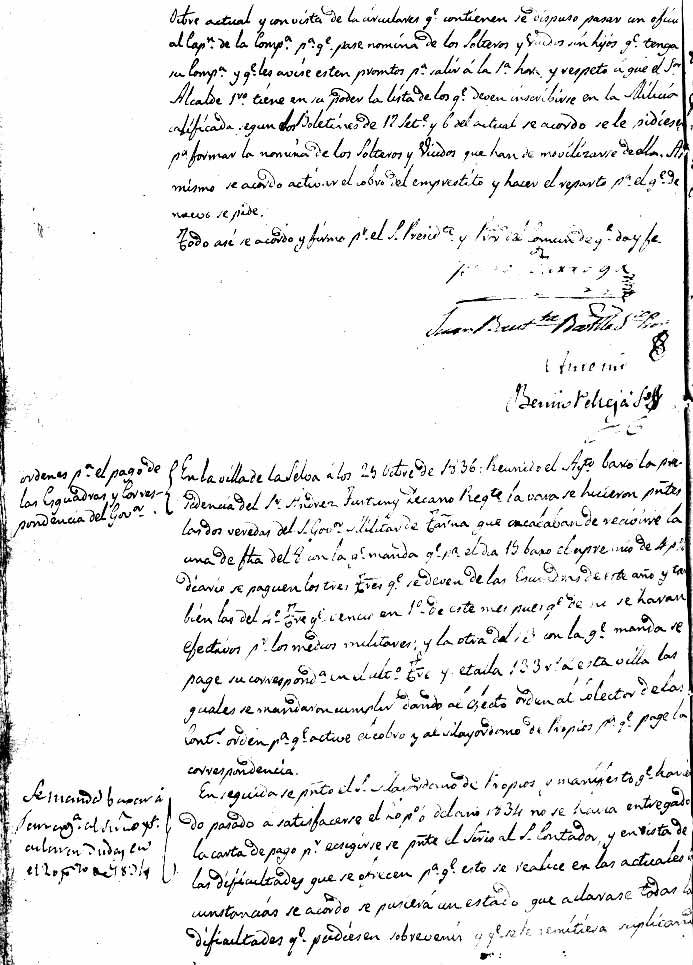 Octbre actual y con vista de la circulares qe. contienen se dispuso pasar un oficio
al Capn. de la Compa. pa. qe. pase nomina de los Solteros y Viudos sin hijos qe. tenga
su Compa. y qe. les avise esten promtos pa. salir á la 1a. hora, y respeto á que el Sor.
Alcalde 1ro. tiene en su poder la lista de los qe. deven inscribirse en la Milicia
calificada segun los Boletines de 17 Sete. y 6 del actual se acordo se le pidiesen
pa. formar la nomina de los Solteros y Viudos que han de movilizarse de ella. Asi
mismo se acordo activar el cobro del emprestito y hacer el reparto pa. el qe. de
nuevo se pide.
Todo asi se acordo y firmo pr. el Sr. Presidte. y Pror. del Comun de qe. doy fe
Juan Bauta.
Antonio
ordenes pa. el pago de
las Esquadras y Corres-
pondencia del Govor.
En la villa de la Selva á los 25 Octbre de 1836: Reunido el Ayto. baxo la pre-
sidencia del Sr. Fortuny Decano Regte. la vara se hicieron pntes.
las dos veredas del Sr. Govor. Militar de Tarrna. que acababan de recivirse la
una de fha del 8 con la qe. manda qe. pa. el dia 15 baxo el apremio de 4 ps.
diarios se paguen los tres Tres. qe. se deven de las Escuadras de este año y tam
bien las del 4o. Tre. qe. vence en 1o. de este mes pues qe. de no se haran
efectivos pr. los medios militares; y la otra del con la qe. manda se
page su correspondа. en el ulto. Tre y detalla 133 rs. á esta villa las
quales se mandaron cumplir dando al efecto orden al Colector de las
Conts. orden pa. qe. active el cobro y al Mayordomo de Propios pa. qe. page la
correspondencia.
Se manda
el 20 p% de 1834
En seguida se pnto. el Sr. Mayordomo de Propios, y manifesto qe. havien
do pasado á satisfacerse el 20 p% del año 1834 no se havia entregado
la carta de pago pr. ecsigirse se pnte el al Sr. Contador, y en vista de
las dificultades que se ofrecen pa. qe. esto se realice en las actuales cir
cunstancias se acordo se pusiera un estado que aclarase todas las
dificultades qe. pudiesen sobrevenir y qe. se le remitiera suplicando